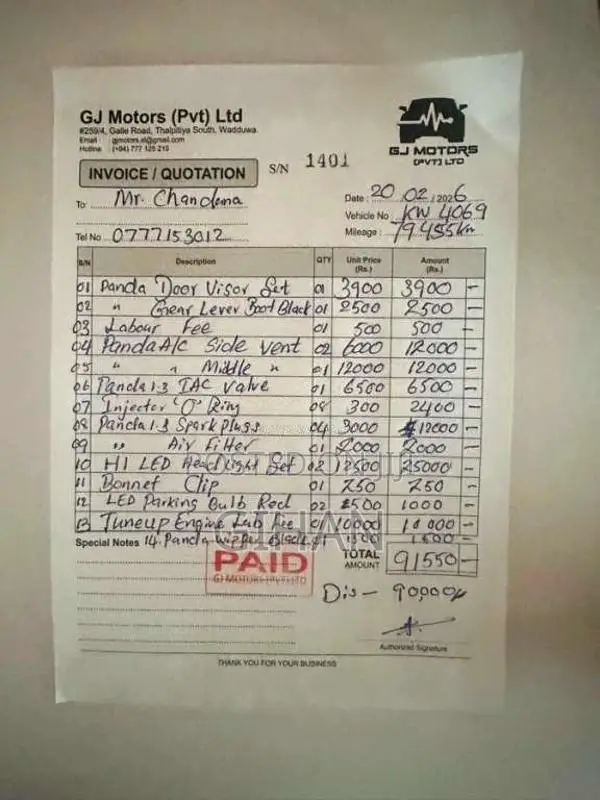 GJ Motors (Pvt) Ltd
#259/4, Galle Road, Thalpitiya South, Wadduwa.
Email : gjmotors.sl@gmail.com
Hotline : (+94) 777 125 215
GJ MOTORS
(PVT) LTD
INVOICE / QUOTATION S/N 1401
To: Mr. Chandema
Date : 20/02/2026
Vehicle No KW 4069
Tel No 0777153012
Mileage : 79455km
S/N Description QTY Unit Price (Rs.) Amount (Rs.)
01 Panda Door Visor Set 01 3900 3900 -
02 " Gear Lever Boot Black 01 2500 2500 -
03 Labour Fee 01 500 500 -
04 Panda A/c Side Vent 02 6000 12000 -
05 " " Middle " 01 12000 12000 -
06 Panda 1.3 IAC Valve 01 6500 6500 -
07 Injector "O" Ring 08 300 2400 -
08 Panda 1.3 Spark plugs 04 3000 12000 -
09 " Air Filter 01 2000 2000 -
10 H1 LED Head light Set 02 12500 25000 -
11 Bonnet Clip 01 250 250 -
12 LED Parking Bulb Red 02 500 1000 -
13 Tuneup Engine Lab Fee 01 10000 10000 -
Special Notes 14. Panda Wipper Blade 01 1500 1500 -
TOTAL AMOUNT 91550 -
PAID
GJ MOTORS (PVT) LTD
Dis - 90,000/=
Authorized Signature
THANK YOU FOR YOUR BUSINESS
POSTED ON JIJI
GIHAN